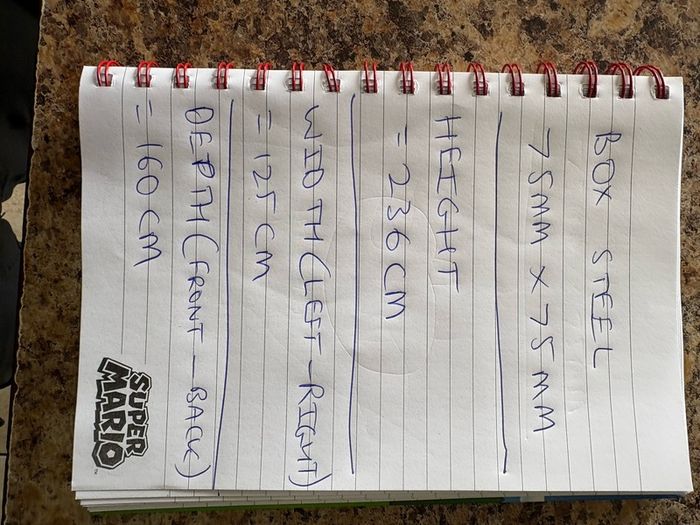 BOX STEEL
75MM X 75MM
HEIGHT
= 236 CM
WIDTH (LEFT - RIGHT)
= 125 CM
DEPTH (FRONT - BACK)
= 160 CM
SUPER
MARIO